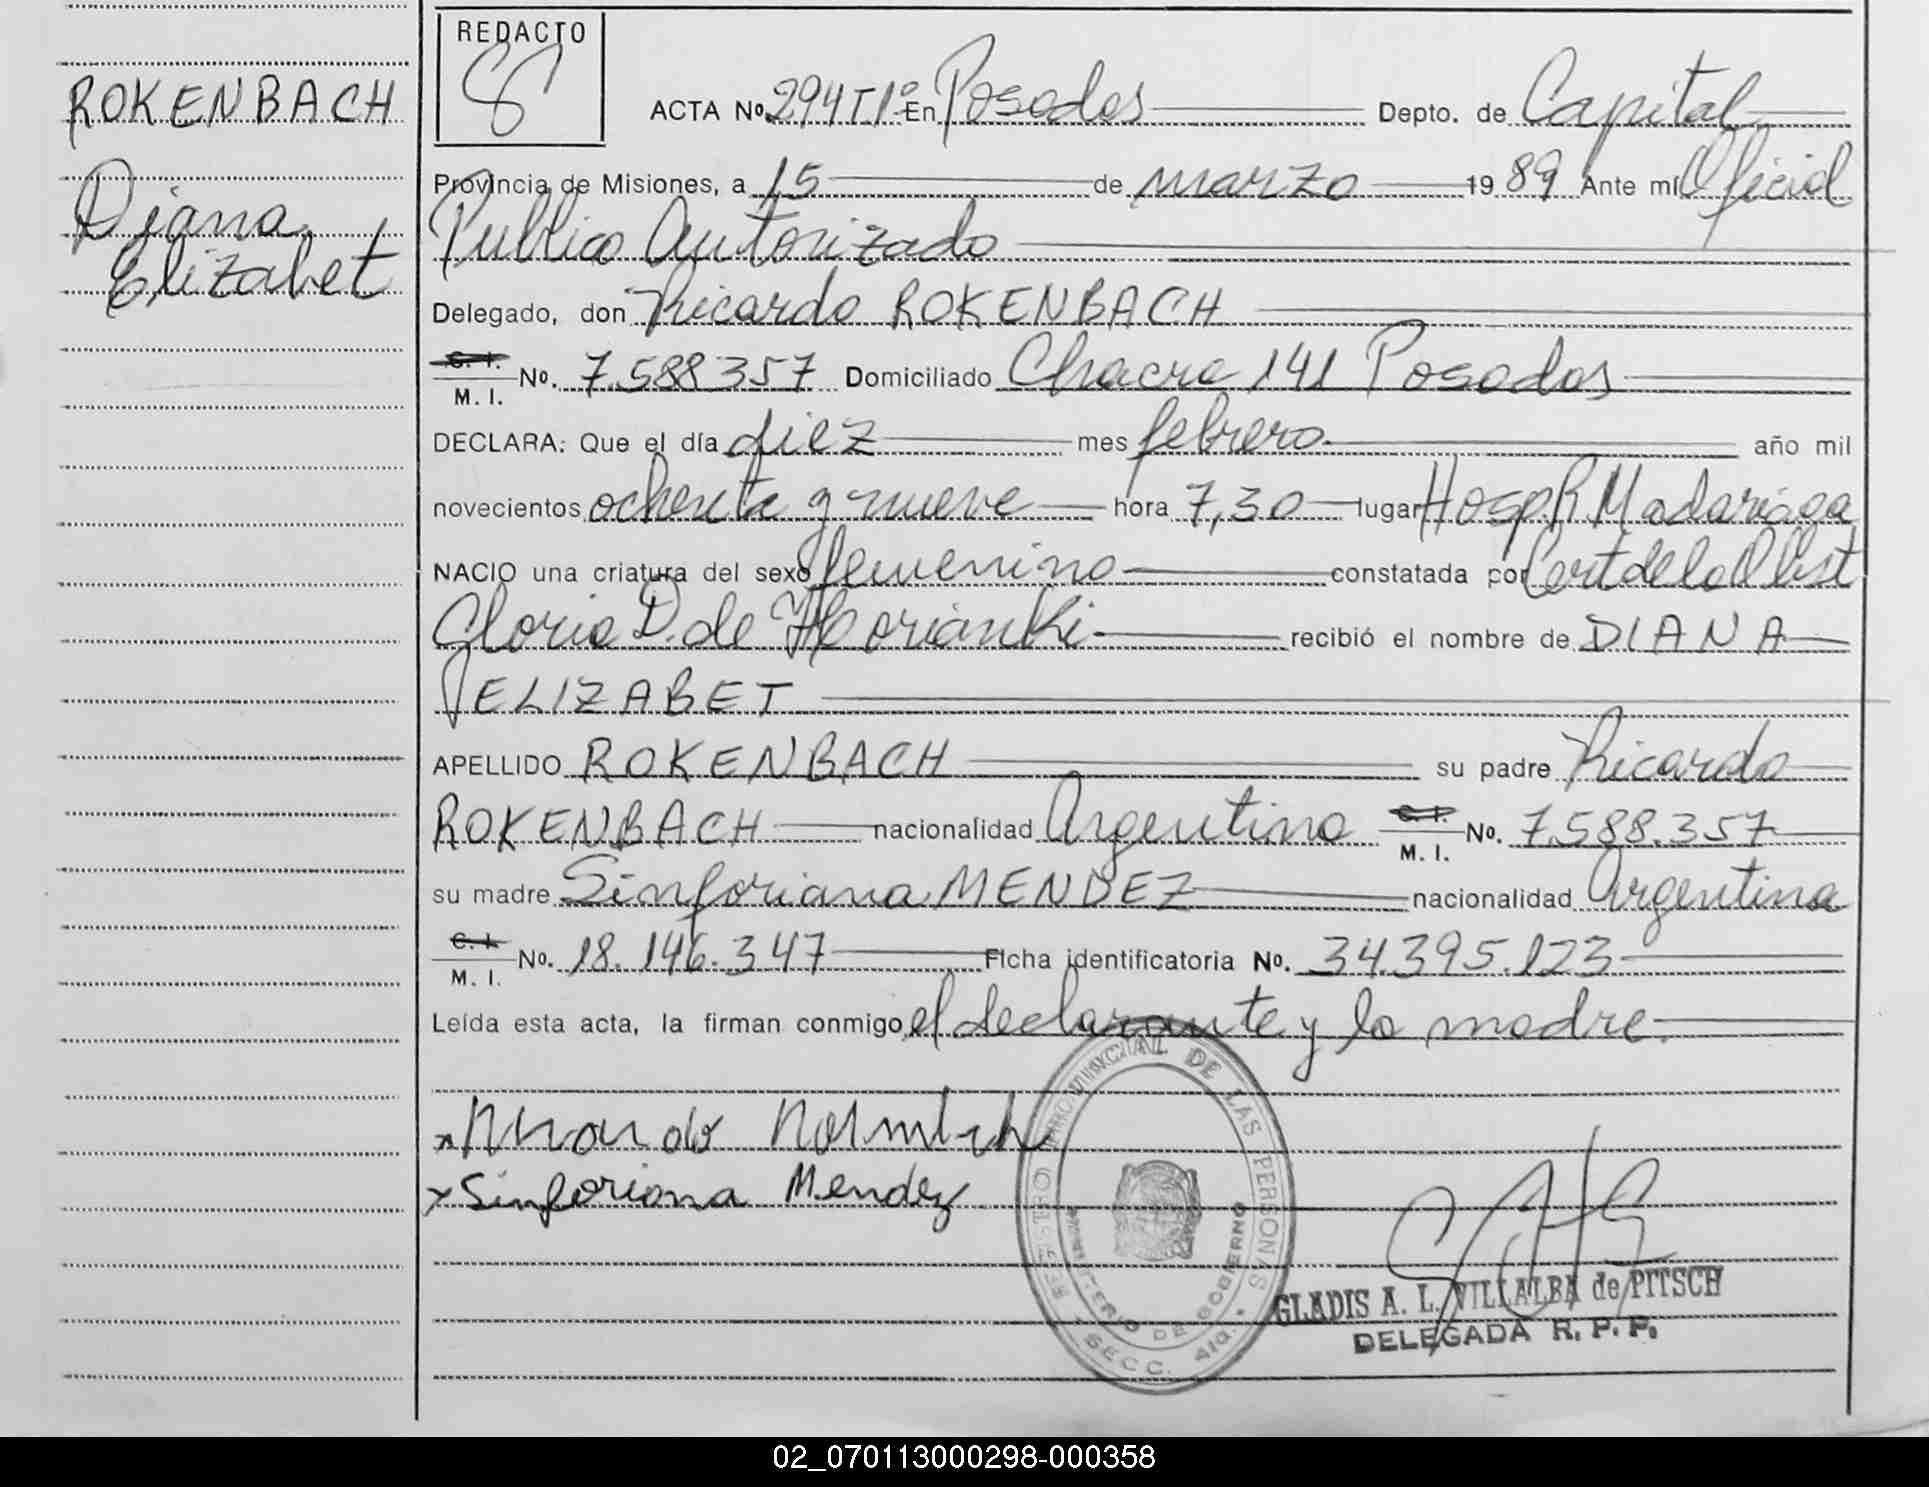 ROKENBACH
Diana
Elizabet
REDACTO
ACTA No. 294 T1º En Posadas Depto. de Capital
Provincia de Misiones, a 15 de marzo 19 89 Ante mí Oficial
Publico Autorizado
Delegado, don Ricardo ROKENBACH
C. I.
M. I. No. 7.588357 Domiciliado Chacra 141 Posadas
DECLARA: Que el día diez mes febrero año mil
novecientos ochenta y nueve hora 7,30 lugar Hosp. R Madariaga
NACIO una criatura del sexo femenino constatada por Cert de la Obst
Gloria D. de recibió el nombre de DIANA
ELIZABET
APELLIDO ROKENBACH su padre Ricardo
ROKENBACH nacionalidad Argentina C. I.
M. I. No. 7.588.357
su madre Sinforiana MENDEZ nacionalidad Argentina
C. I.
M. I. No. 18.146.347 Ficha identificatoria No. 34.395.123
Leída esta acta, la firman conmigo el declarante y la madre.
x Sinforiana Mendez
REGISTRO PROVINCIAL DE LAS PERSONAS
MINISTERIO DE GOBIERNO
SECC. 4ta.
GLADIS A. L. VILLALBA de PITSCH
DELEGADA R. P. P.
02_070113000298-000358